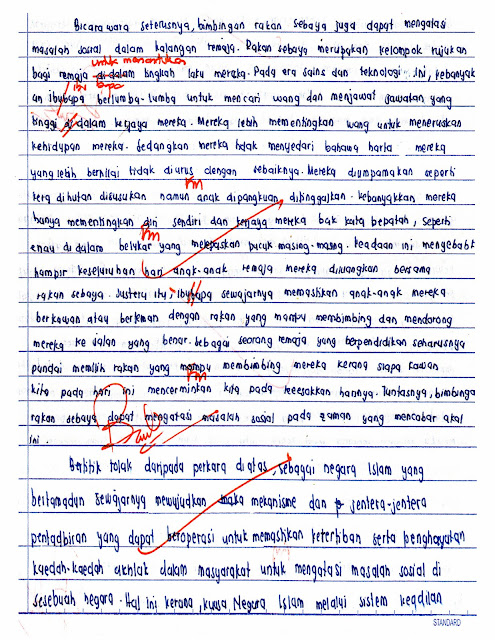 Bicarawara seterusnya, bimbingan rakan sebaya juga dapat mengatasi
masalah sosial dalam kalangan remaja. Rakan sebaya merupakan kelompok rujukan
untuk menentukan
bagi remaja di dalam tingkah laku mereka. Pada era sains dan teknologi ini, kebanyak
ibu bapa
an ibubapa berlumba-lumba untuk mencari wang dan menjawat jawatan yang
tinggi di dalam kerjaya mereka. Mereka lebih mementingkan wang untuk meneruskan
kehidupan mereka. Sedangkan mereka tidak menyedari bahawa harta mereka
yang lebih bernilai tidak diurus dengan sebaiknya. Mereka diumpamakan seperti
kera di hutan disusukan namun anak dipangkuan, ditinggalkan. Kebanyakkan mereka
hanya mementingkan diri sendiri dan kerjaya mereka bak kata bepatah, seperti
enau di dalam belukar yang melepaskan pucuk masing-masing. Keadaan ini menyebabk
hampir keseluruhan hari anak-anak remaja mereka diluangkan bersama
rakan sebaya. Justeru itu, ibubapa sewajarnya memastikan anak-anak mereka
berkawan atau berteman dengan rakan yang mampu membimbing dan mendorong
mereka ke jalan yang benar. Sebagai seorang remaja yang berpendidikan seharusnya
pandai memilih rakan yang mampu membimbing mereka kerana siapa kawan
kita pada hari ini mencerminkan kita pada keesokkan harinya. Tuntasnya, bimbinga
rakan sebaya dapat mengatasi masalah sosial pada zaman yang mencabar akal
ini.
Bertitik tolak daripada perkara di atas, sebagai negara Islam yang
bertamadun sewajarnya mewujudkan mekanisme dan jentera-jentera
pentadbiran yang dapat beroperasi untuk memastikan ketertiban serta penghayatan
kaedah-kaedah akhlak dalam masyarakat untuk mengatasi masalah sosial di
sesebuah negara. Hal ini kerana, kuasa Negara Islam melalui sistem keadilan
STANDARD